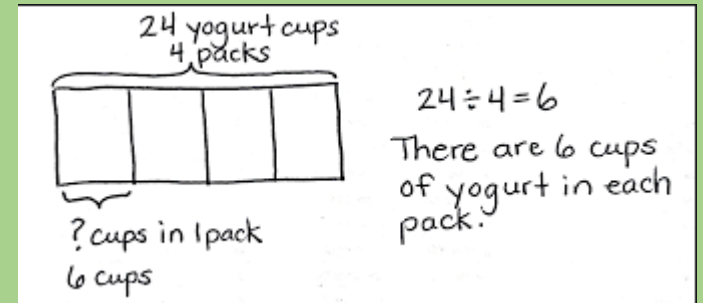 24 yogurt cups
4 packs
? cups in 1 pack
6 cups
24 ÷ 4 = 6
There are 6 cups
of yogurt in each
pack.